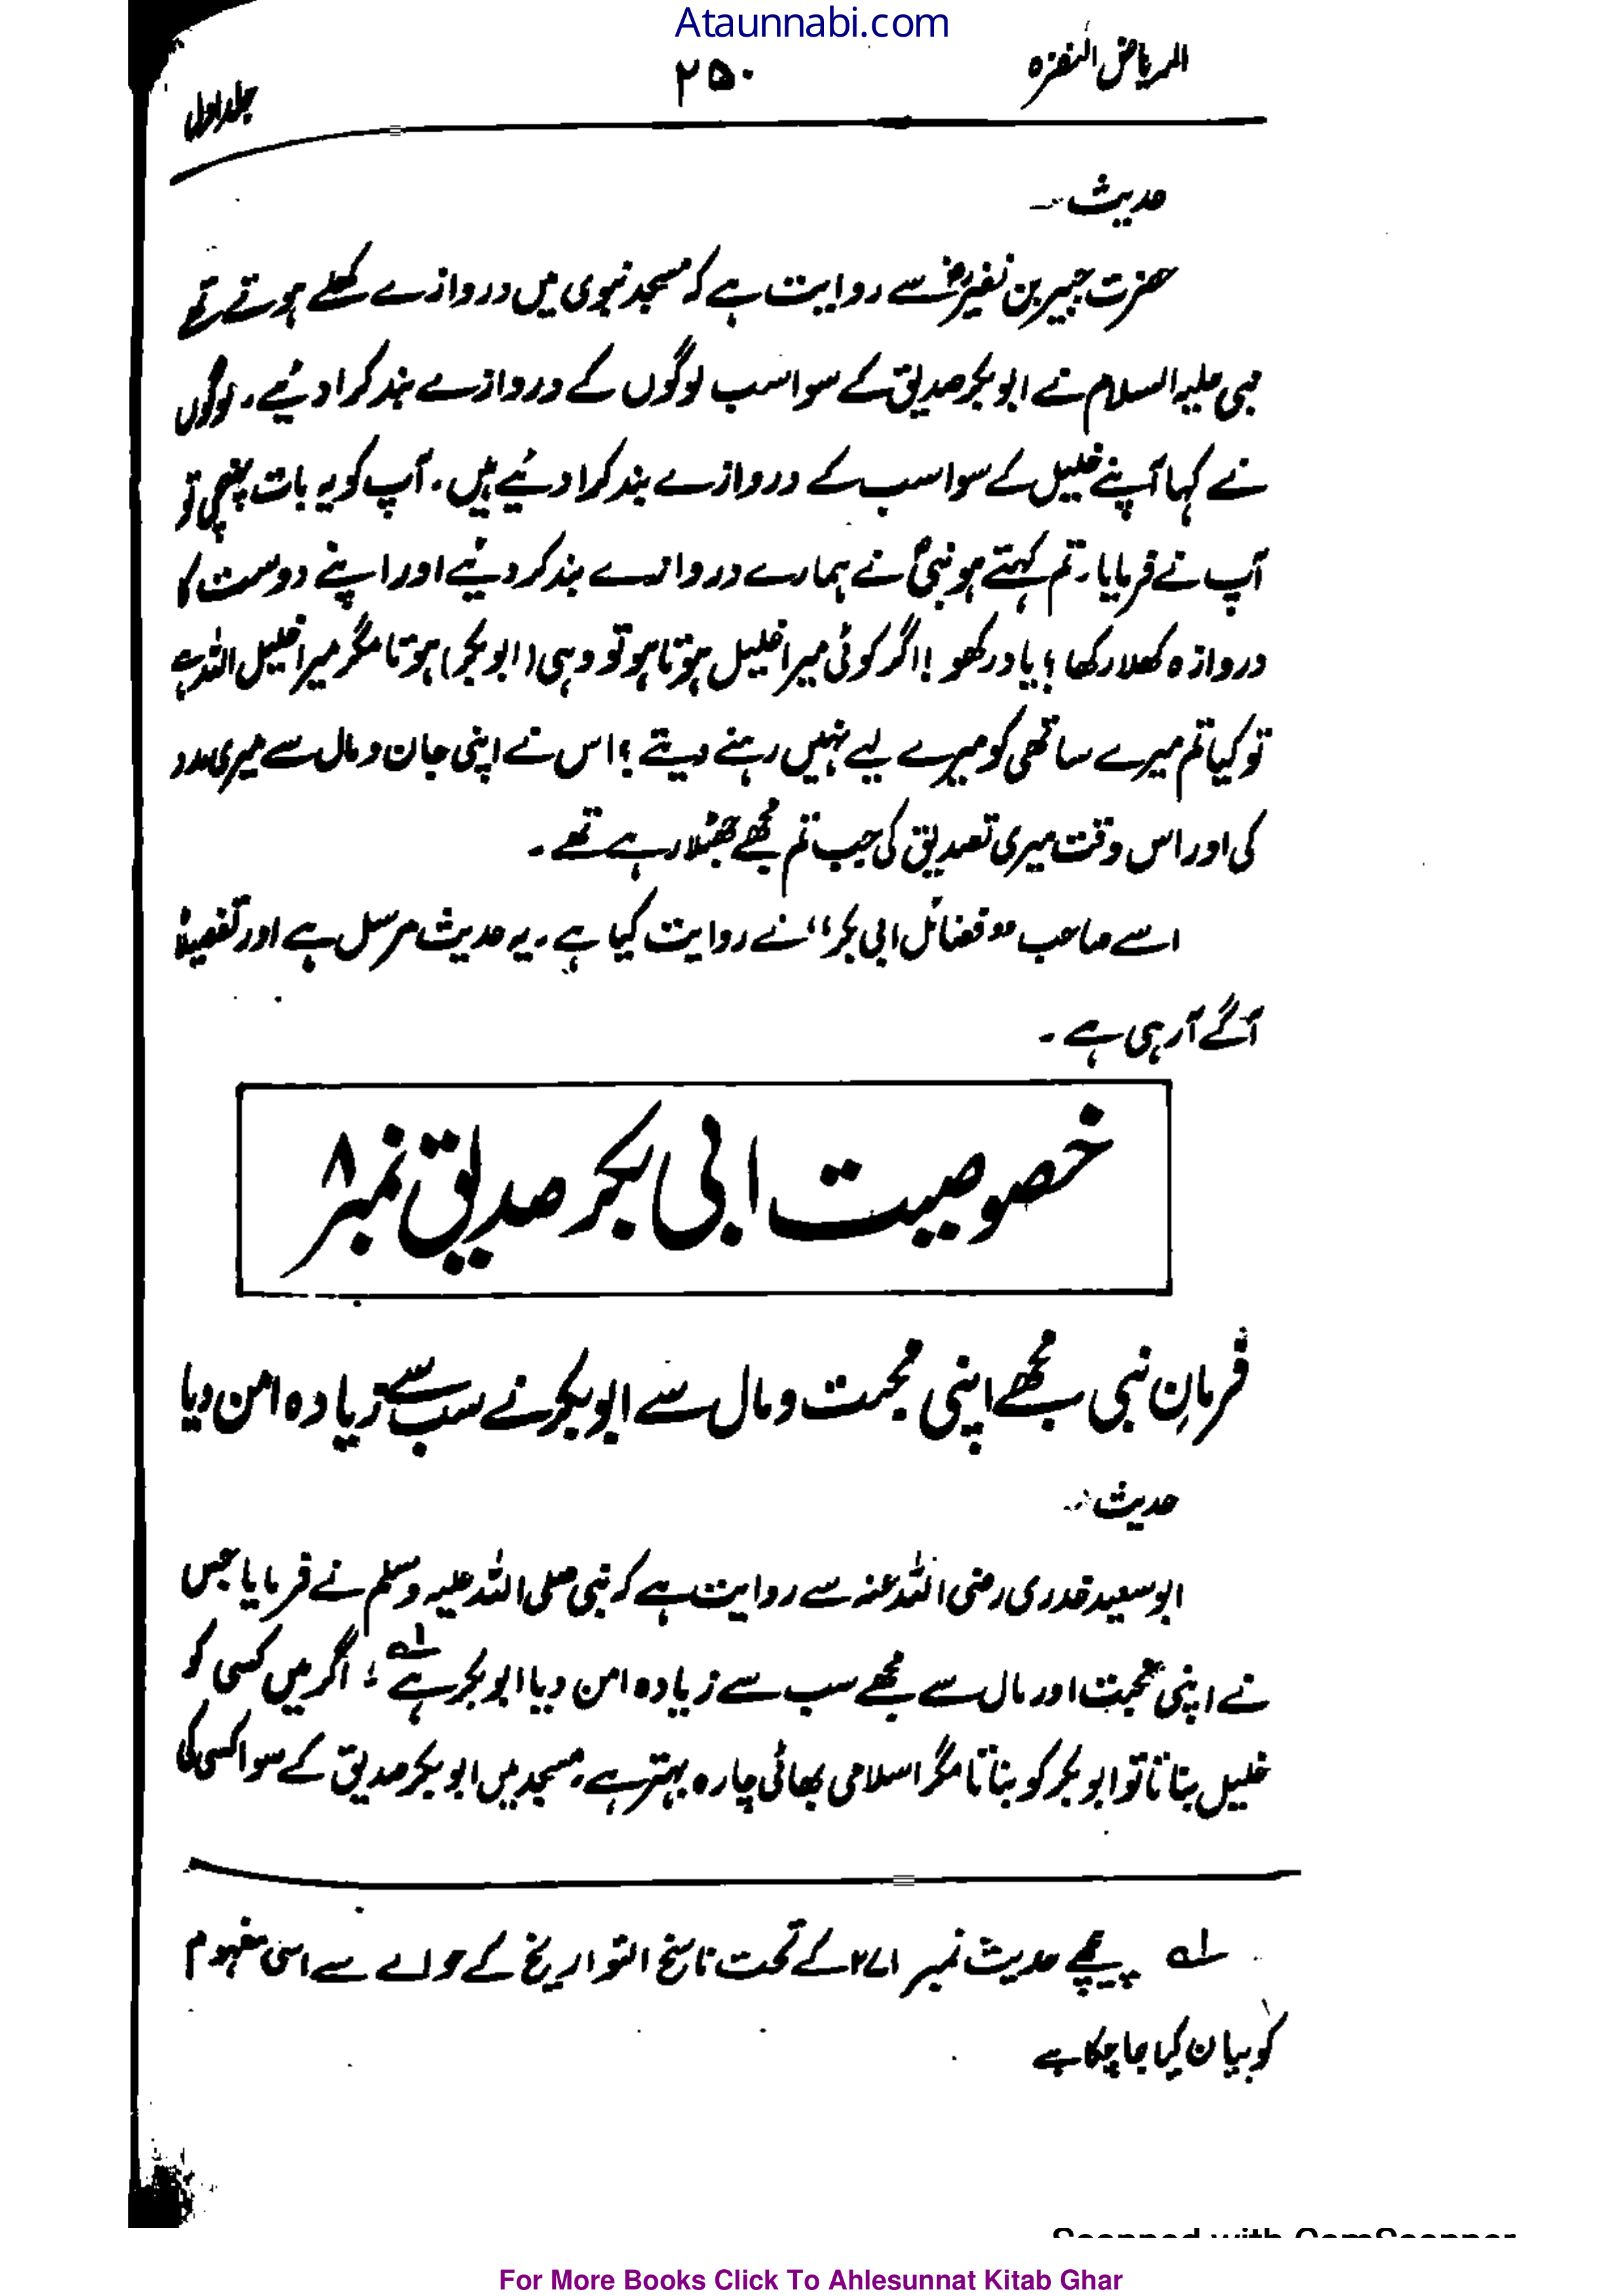 Ataunnabi.com
الریاض النضرہ
۲۵۰
جلد اول
حدیث۔
حضرت جبیر بن نفیرؓ سے روایت ہے کہ مسجد نبوی میں دروازے کھلے ہوتے تھے
نبی علیہ السلام نے ابوبکر صدیق کے سوا سب لوگوں کے دروازے بند کرا دئیے۔ لوگوں
نے کہا آپنے خلیل کے سوا سب کے دروازے بند کرا دئیے ہیں۔ آپ کو یہ بات پہنچی تو
آپ نے فرمایا۔ تم کہتے ہو نبیؐ نے ہمارے دروازے بند کر دئیے اور اپنے دوست کا
دروازہ کھلا رکھا؛ یاد رکھو!! اگر کوئی میرا خلیل ہوتا ہو تو وہی (ابوبکر) ہوتا مگر میرا خلیل اللہ ہے
تو کیا تم میرے ساتھی کو میرے لیے نہیں رہنے دیتے؟ اس نے اپنی جان و مال سے میری مدد
کی اور اس وقت میری تصدیق کی جب تم مجھے جھٹلا رہے تھے۔
اسے صاحب ”فضائل ابی بکر“ نے روایت کیا ہے۔ یہ حدیث مرسل ہے اور تفصیلاً
آگے آ رہی ہے۔
خصوصیت ابی بکر صدیق نمبر ۸
فرمانِ نبی مجھے اپنی محبت و مال سے ابوبکر نے سب سے زیادہ امن دیا
حدیث۔
ابو سعید خدری رضی اللہ عنہ سے روایت ہے کہ نبی صلی اللہ علیہ وسلم نے فرمایا جس
نے اپنی محبت اور مال سے مجھے سب سے زیادہ امن دیا ابوبکر ہے لہ ؛ اگر میں کسی کو
خلیل بناتا تو ابوبکر کو بناتا مگر اسلامی بھائی چارہ بہتر ہے۔ مسجد میں ابوبکر صدیق کے سوا کسی کی
لہ پیچھے حدیث نمبر ۲۷۱ کے تحت ناسخ التواریخ کے حوالے سے اسی مفہوم
کو بیان کیا جا چکا ہے
Scanned with CamScanner
For More Books Click To Ahlesunnat Kitab Ghar